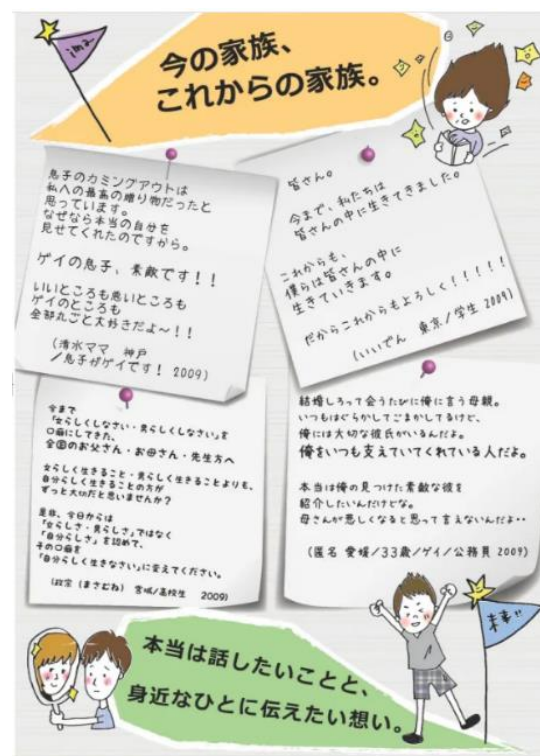 今の家族、
これからの家族。
息子のカミングアウトは
私への最高の贈り物だったと
思っています。
なぜなら本当の自分を
見せてくれたのですから。
ゲイの息子、素敵です！！
いいところも悪いところも
ゲイのところも
全部丸ごと大好きだよ～！！
(清水ママ 神戸
／息子がゲイです！ 2009)
皆さん。
今まで、私たちは
皆さんの中に生きてきました。
これからも、
僕らは皆さんの中に
生きていきます。
だからこれからもよろしく！！！！！
(いいでん 東京／学生 2009)
今まで
「女らしくしなさい・男らしくしなさい」を
口癖にしてきた、
全国のお父さん・お母さん・先生方へ
女らしく生きること・男らしく生きることよりも、
自分らしく生きることの方が
ずっと大切だと思いませんか？
是非、今日からは
「女らしさ・男らしさ」ではなく
「自分らしさ」を認めて、
その口癖を
「自分らしく生きなさい」に変えてください。
(政宗（まさむね） 宮城／高校生 2009)
結婚しろって会うたびに俺に言う母親。
いつもはぐらかしてごまかしてるけど、
俺には大切な彼氏がいるんだよ。
俺をいつも支えていてくれている人だよ。
本当は俺の見つけた素敵な彼を
紹介したいんだけどな。
母さんが悲しくなると思って言えないんだよ・・
(匿名 愛媛／33歳／ゲイ／公務員 2009)
未来！！
本当は話したいことと、
身近なひとに伝えたい想い。